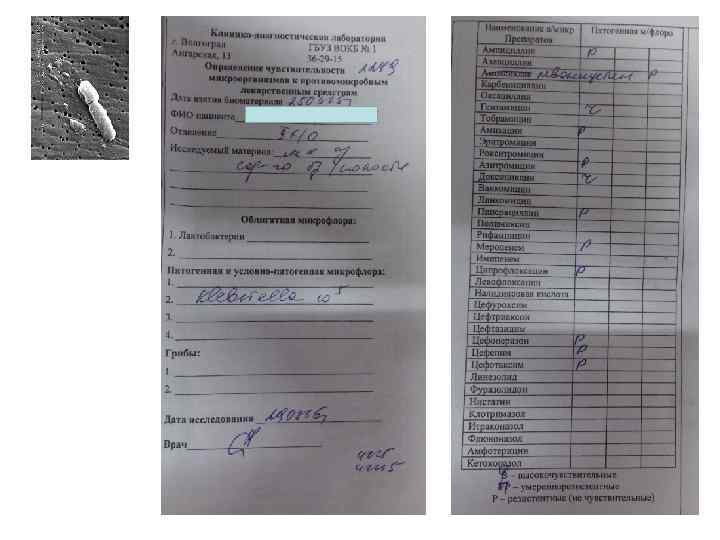 Клинико-диагностическая лаборатория
г. Волгоград ГБУЗ ВОКБ № 1
Ангарская, 13 36-29-15
Определение чувствительности
микроорганизмов к противомикробным
лекарственным средствам
Дата взятия биоматериала
ФИО пациента
Отделение
Исследуемый материал:
Облигатная микрофлора:
1. Лактобактерии
2.
Патогенная и условно-патогенная микрофлора:
1.
2. Klebsiella 10⁵
3.
4.
Грибы:
1
2.
Дата исследования
Врач
Наименование а/микр Патогенная м/флора
Препаратов
Ампициллин Р
Азлоциллин
Р
Карбенициллин
Оксациллин
Гентамицин ч
Тобрамицин
Амикацин Р
Эритромицин
Рокситромицин
Азитромицин Р
Доксициклин ч
Ванкомицин
Линкомицин
Пиперациллин Р
Полимиксин
Рифампицин
Меропенем Р
Имипенем
Ципрофлоксацин Р
Левофлоксацин
Налидиксовая кислота
Цефуроксим
Цефтриаксон
Цефтазидим
Цефоперазон Р
Цефепим Р
Цефотаксим Р
Линезолид
Фуразолидон
Нистатин
Клотримазол
Итраконазол
Флюконазол
Амфотерицин
Кетоконазол
– высокочувствительные
– умереннорезистентные
Р – резистентные (не чувствительные)